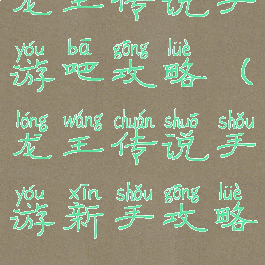 龙王传说手
yóu bā gōng lüè
游吧攻略（
lóng wáng chuán shuō shǒu
龙王传说手
yóu xīn shǒu gōng lüè
游新手攻略